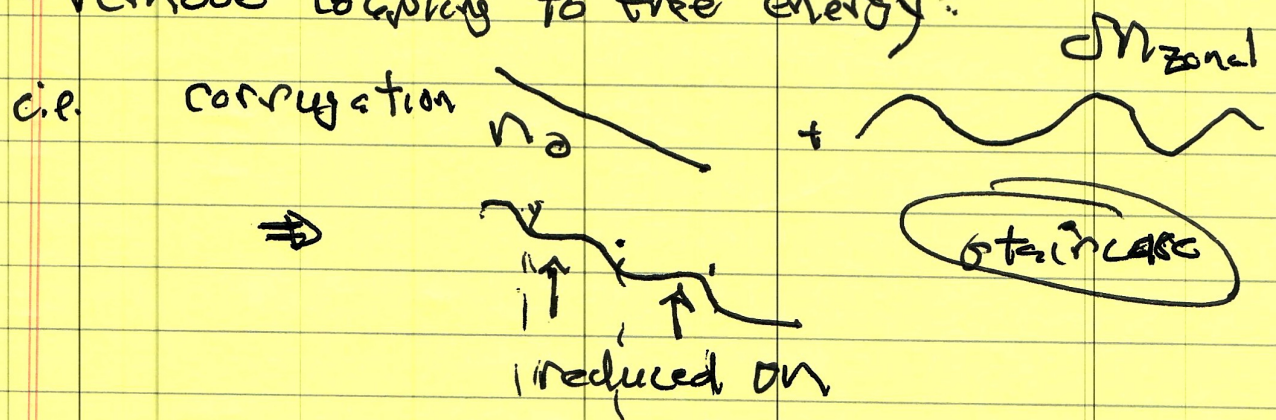 coupling to free energy.
δn zonal
i.e. corrugation n₀ +
⇒ staircase
reduced on